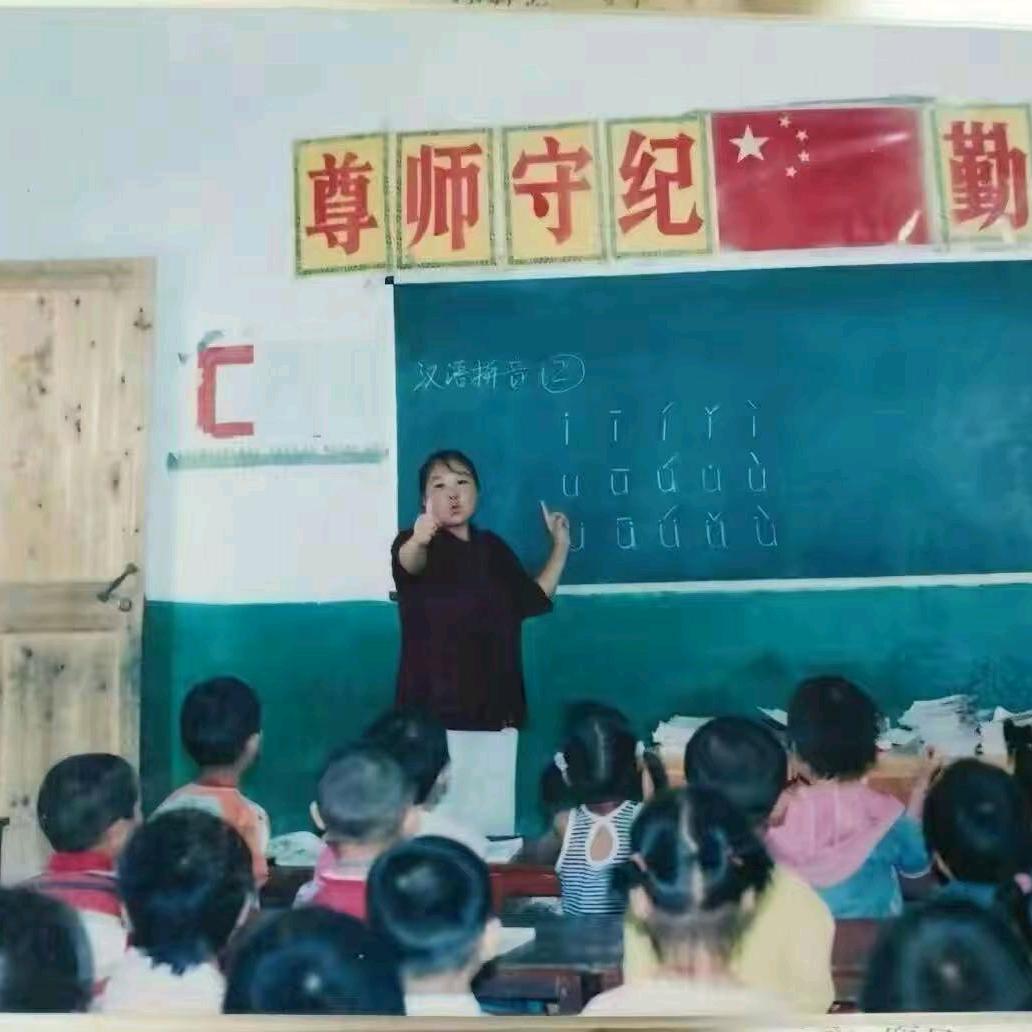 尊师守纪 勤
汉语拼音(2)
i ī í ǐ ì
u ū ú ǔ ù
ü ǖ ǘ ǚ ǜ